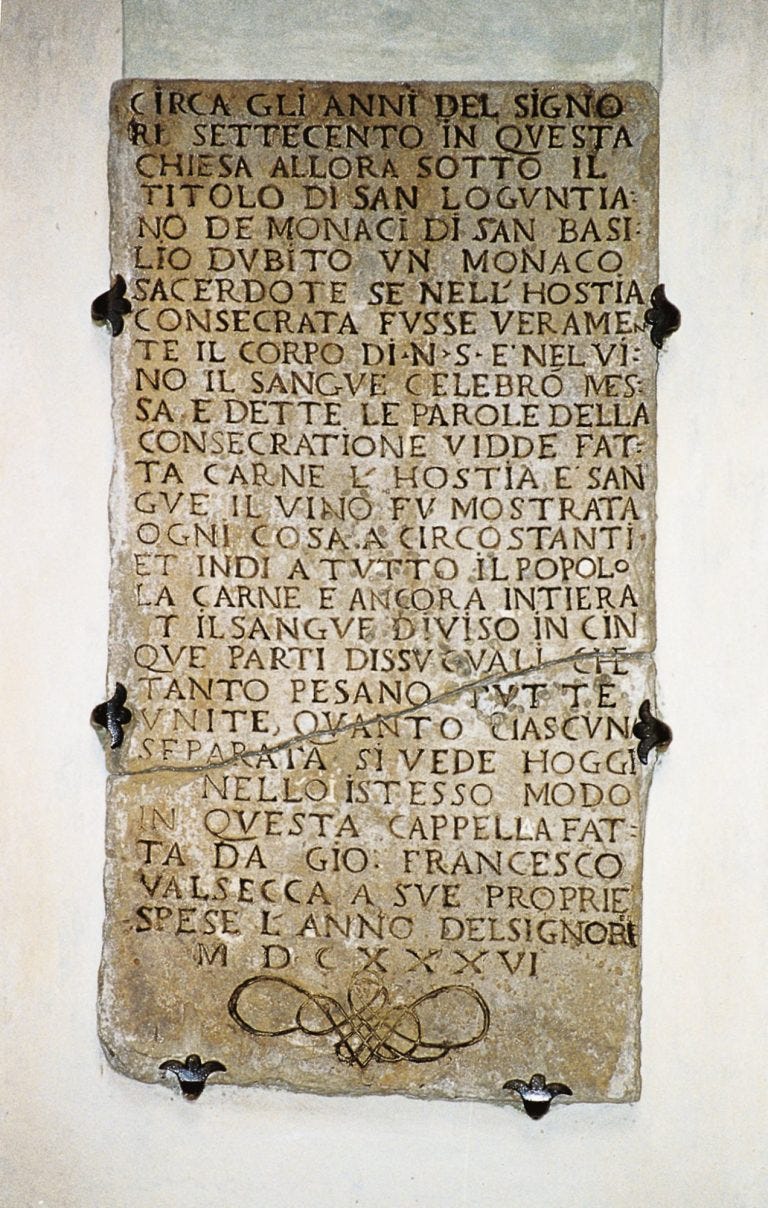 CIRCA GLI ANNI DEL SIGNO
RE SETTECENTO IN QVESTA
CHIESA ALLORA SOTTO IL
TITOLO DI SAN LOGVNTIA:
NO DE MONACI DI SAN BASI:
LIO DVBITO VN MONACO
SACERDOTE SE NELL'HOSTIA
CONSECRATA FVSSE VERAMEN
TE IL CORPO DI·N·S·E'NEL VI:
NO IL SANGVE CELEBRÓ MES:
SA E DETTE LE PAROLE DELLA
CONSECRATIONE VIDDE FAT:
TA CARNE L'HOSTIA E'SAN
GVE IL VINO FV MOSTRATA
OGNI COSA.A CIRCOSTANTI·
ET INDI A TVTTO IL POPOLO
LA CARNE E ANCORA INTIERA
T IL SANGVE DIVISO IN CIN
QVE PARTI CHE
TANTO PESANO TVTTE
VNITE, QVANTO CIASCVNA
SEPARATA SI VEDE HOGGI
NELLO ISTESSO MODO
IN QVESTA CAPPELLA FAT:
TA DA GIO· FRANCESCO
VALSECCA A SVE PROPRIE
SPESE L'ANNO DEL SIGNORE
M D C X X X VI